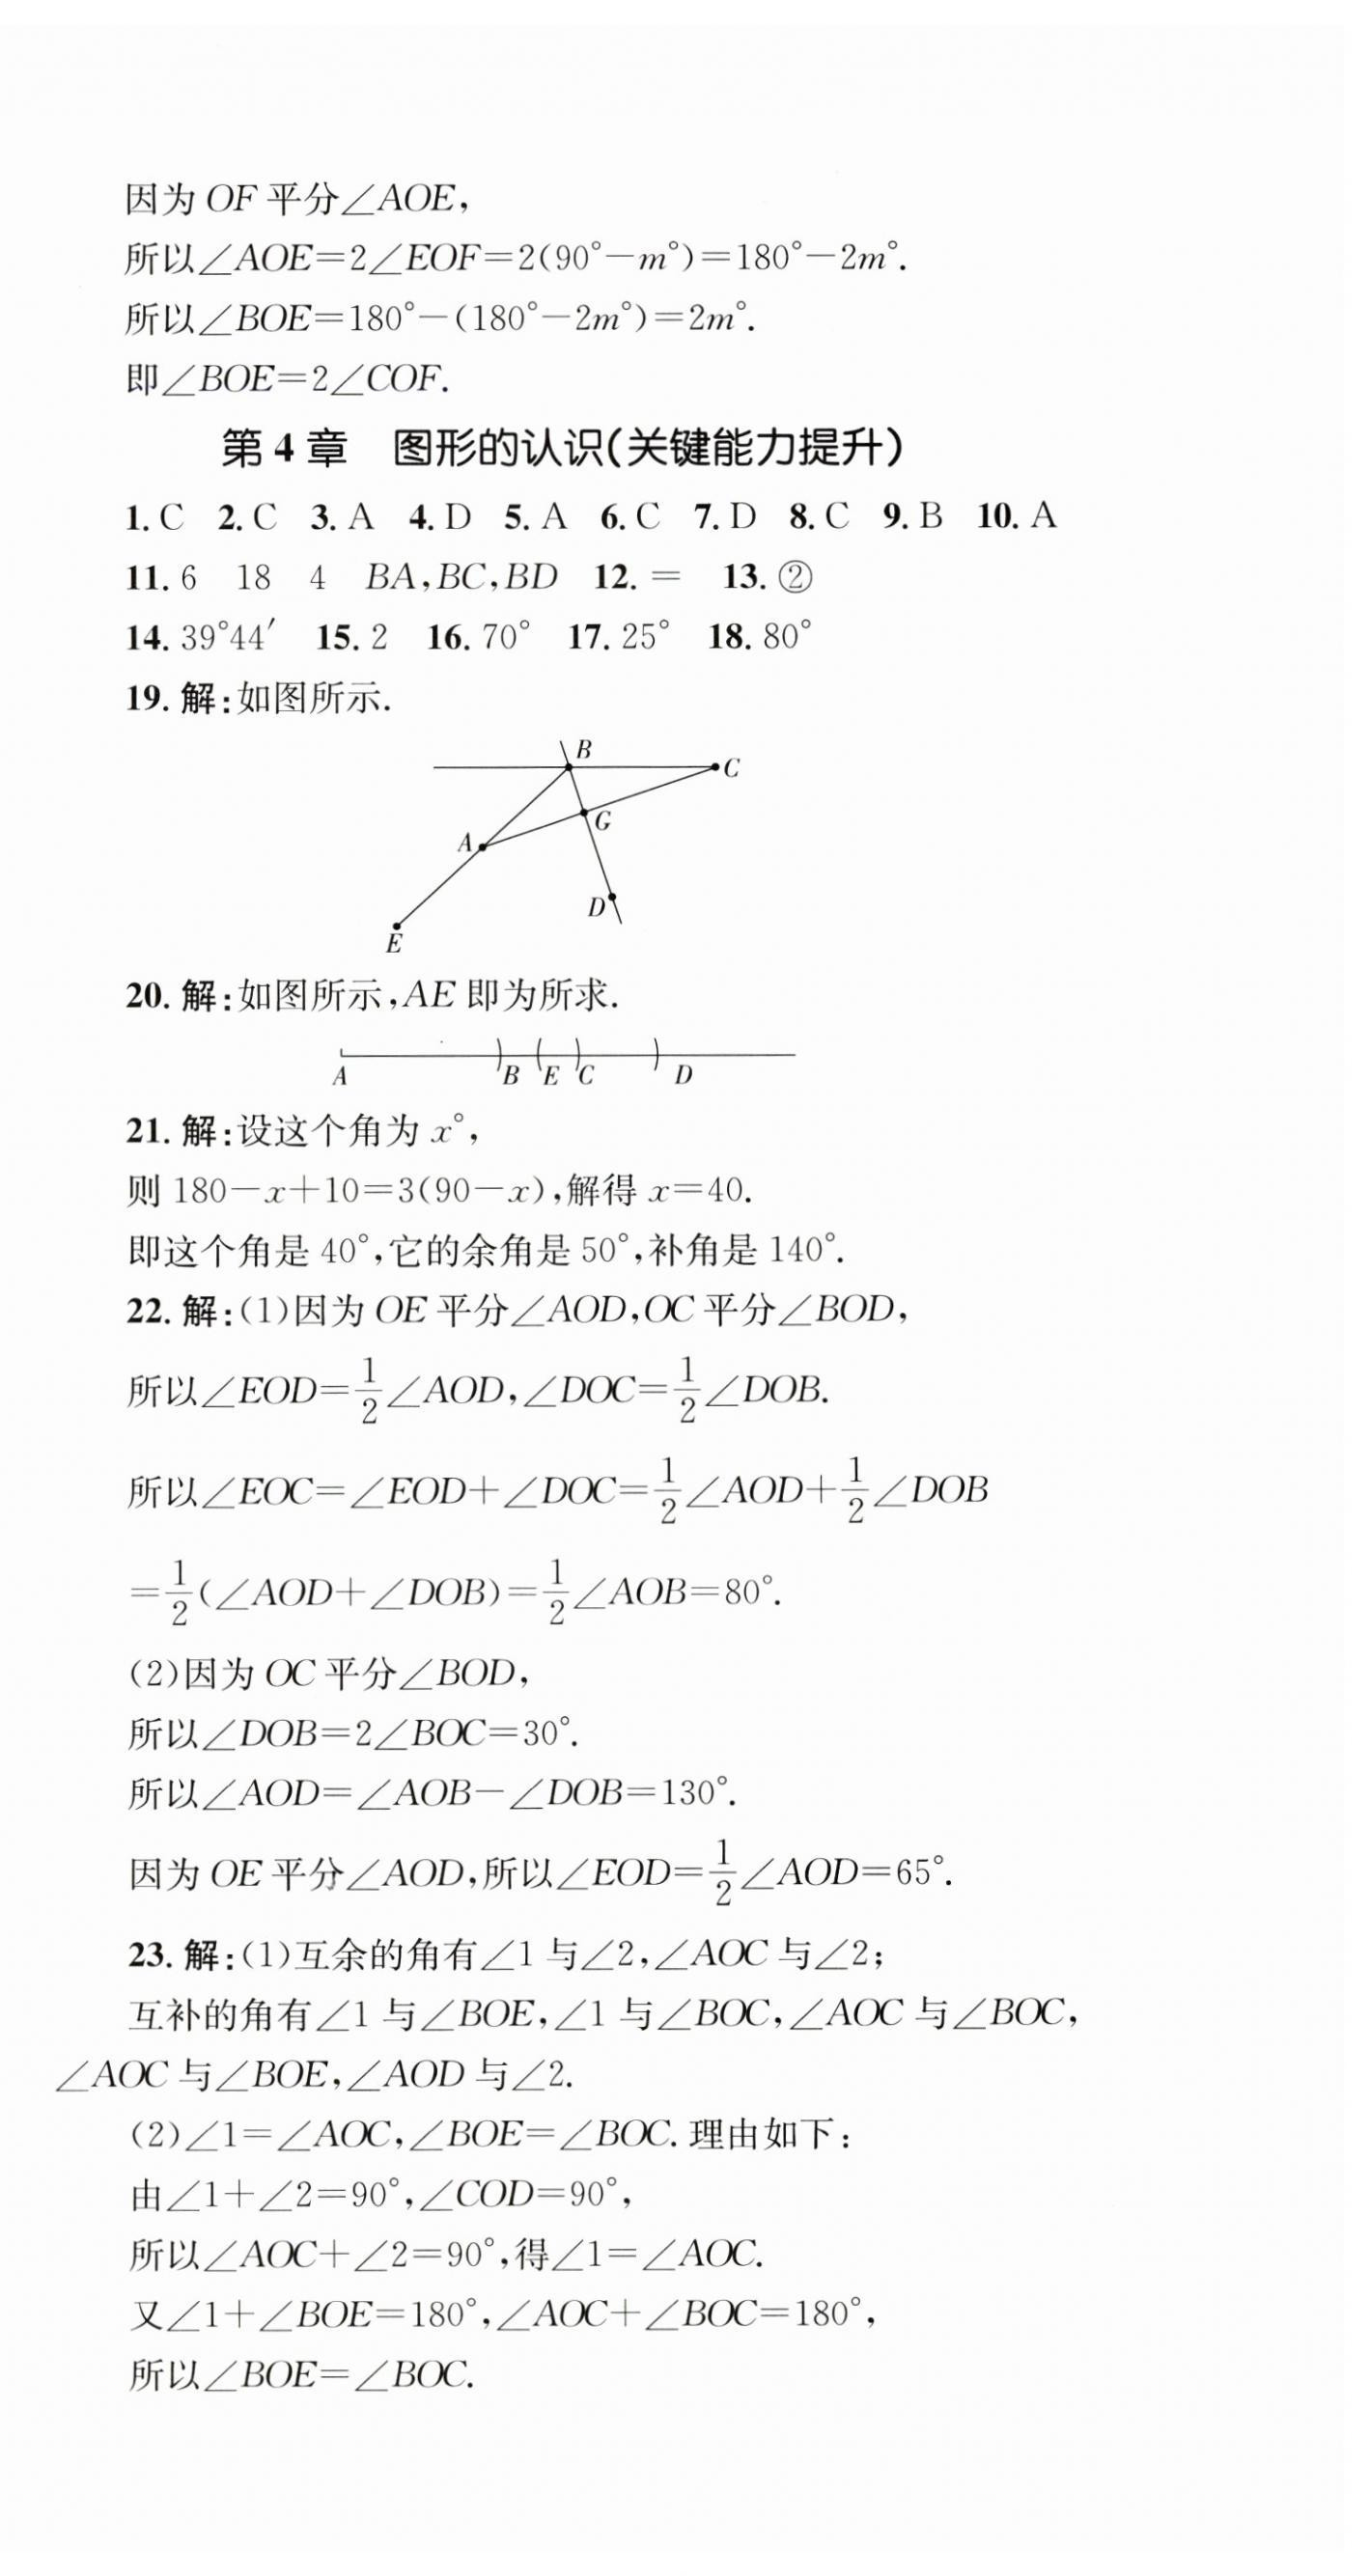 因为 OF 平分∠AOE,
所以∠AOE=2∠EOF=2(90°-m°)=180°-2m°.
所以∠BOE=180°-(180°-2m°)=2m°.
即∠BOE=2∠COF.
第 4 章 图形的认识(关键能力提升)
1. C 2. C 3. A 4. D 5. A 6. C 7. D 8. C 9. B 10. A
11. 6 18 4 BA,BC,BD 12. = 13. ②
14. 39°44′ 15. 2 16. 70° 17. 25° 18. 80°
19. 解:如图所示.
B
C
G
A
D
E
20. 解:如图所示,AE 即为所求.
A B E C D
21. 解:设这个角为 x°,
则 180-x+10=3(90-x),解得 x=40.
即这个角是 40°,它的余角是 50°,补角是 140°.
22. 解:(1)因为 OE 平分∠AOD,OC 平分∠BOD,
所以∠EOD=1/2∠AOD,∠DOC=1/2∠DOB.
所以∠EOC=∠EOD+∠DOC=1/2∠AOD+1/2∠DOB
=1/2(∠AOD+∠DOB)=1/2∠AOB=80°.
(2)因为 OC 平分∠BOD,
所以∠DOB=2∠BOC=30°.
所以∠AOD=∠AOB-∠DOB=130°.
因为 OE 平分∠AOD,所以∠EOD=1/2∠AOD=65°.
23. 解:(1)互余的角有∠1 与∠2,∠AOC 与∠2;
互补的角有∠1 与∠BOE,∠1 与∠BOC,∠AOC 与∠BOC,
∠AOC 与∠BOE,∠AOD 与∠2.
(2)∠1=∠AOC,∠BOE=∠BOC. 理由如下:
由∠1+∠2=90°,∠COD=90°,
所以∠AOC+∠2=90°,得∠1=∠AOC.
又∠1+∠BOE=180°,∠AOC+∠BOC=180°,
所以∠BOE=∠BOC.